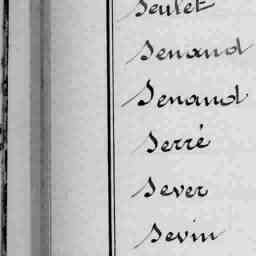 Seulet
Senaud
Senaud
Serré
Sever
Sevin